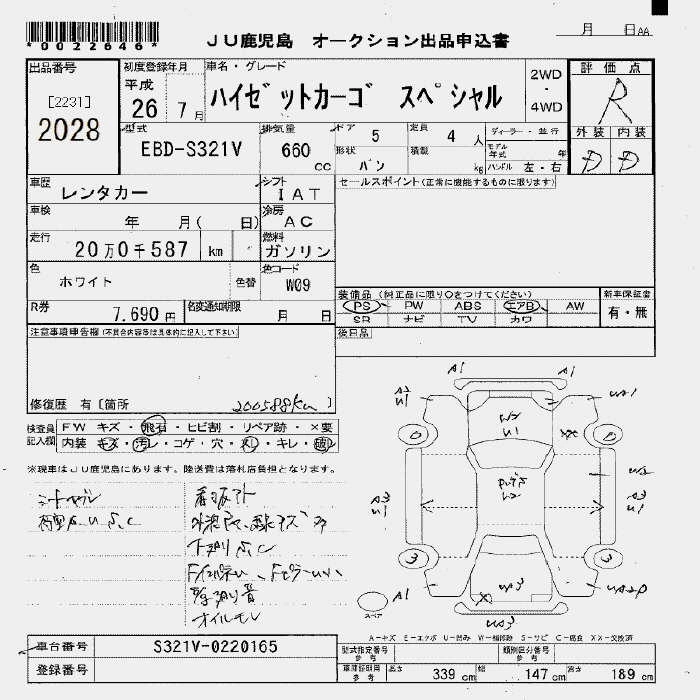 *0022646*
JU鹿児島 オークション出品申込書
月 日 AA
出品番号
[2231]
2028
初度登録年月
平成
26 7 月
車名・グレード
ハイゼットカーゴ スペシャル
2WD
・
4WD
評価点
R
外装 内装
D D
型式
EBD-S321V
排気量
660
cc
ドア
5
定員
4 人
形状
バン
積載
kg
ディーラー・並行
モデル年式 年
ハンドル 左・右
車歴
レンタカー
シフト
IAT
セールスポイント(正常に機能するものに限ります)
車検
年 月( 日)
冷房
AC
走行
20万0千587 km
燃料
ガソリン
色
ホワイト
色替
色コード
W09
装備品(純正品に限り○をつけてください)
PS PW ABS エアB AW
SR ナビ TV カワ
新車保証書
有・無
R券
7.690 円
名変通知期限
月 日
後日品
注意事項申告欄(不具合内容等は具体的に記入して下さい)
修復歴 有〔箇所 200588km 〕
検査員記入欄
FW キズ・飛石・ヒビ割・リペア跡・×要
内装 キズ・汚レ・コゲ・穴・スレ・キレ・破レ
※現車はJU鹿児島にあります。陸送費は落札店負担となります。
下廻りS,C
オイルモレ
A1
A1
A2
U1
W2
U1
XX
0
0
A3
U1
3
3
A1
スペア
X
A-キズ E-エクボ U-凹み W-補修跡 S-サビ C-腐食 XX-交換済
車台番号
S321V-0220165
登録番号
型式指定番号
参考
類別区分番号
参考
車庫証明用
参考
長さ 339 cm
幅 147 cm
高さ 189 cm